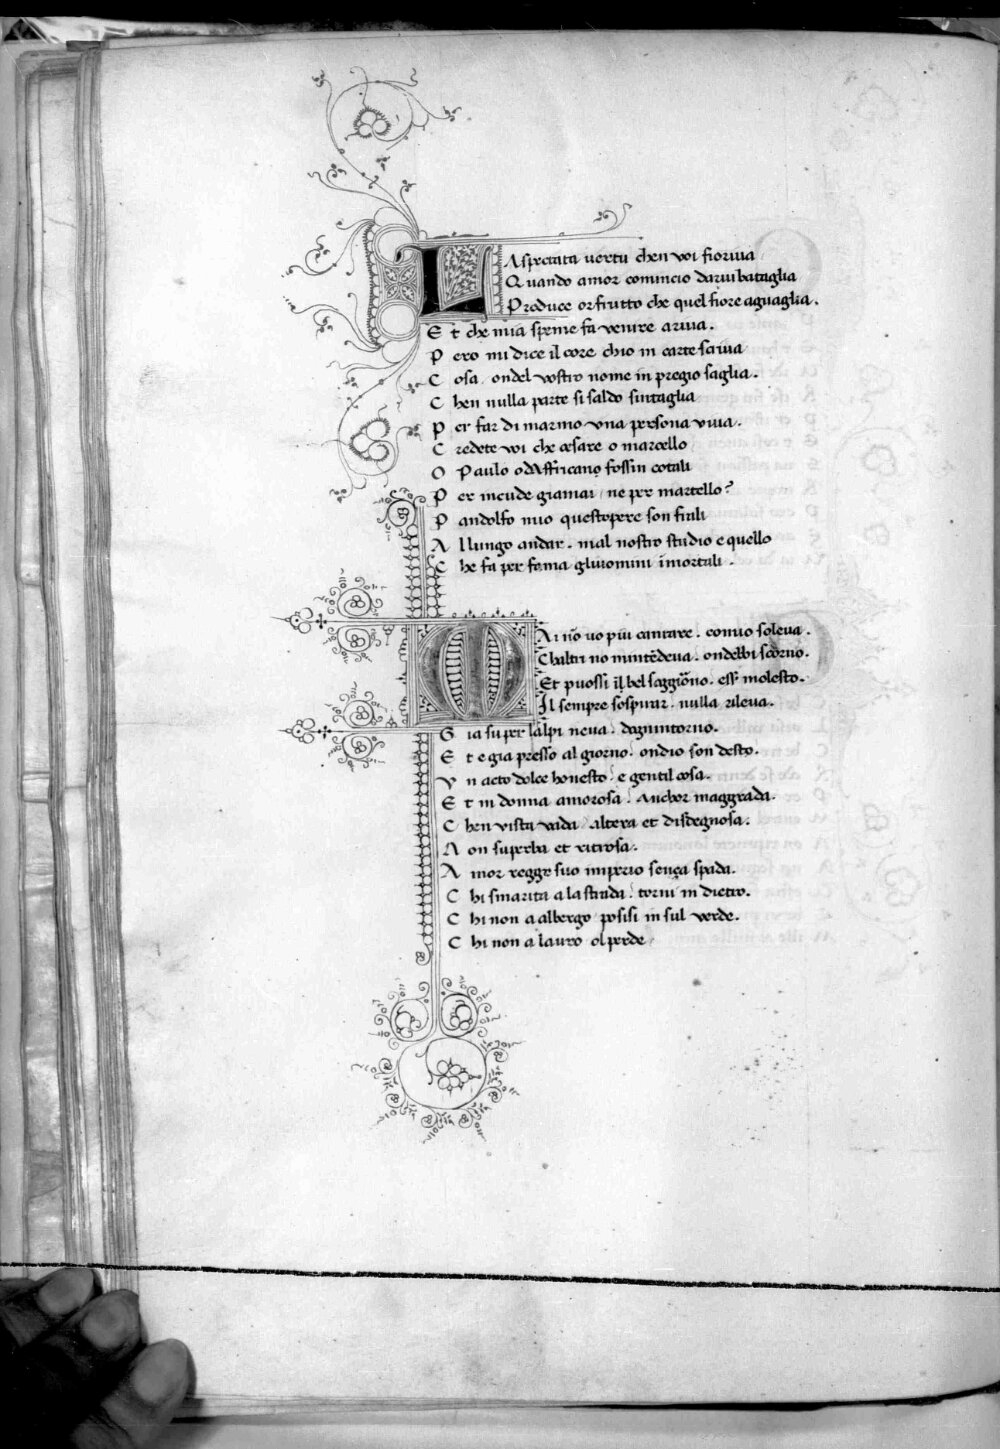 L Aspectata vertu chen voi fioriua
Quando amor comincio darui bataglia
Produce or frutto che quel fiore aguaglia.
Et che mia speme fa venire ariua.
Pero mi dice il core chio in carte scriua
Cosa. ondel vostro nome in pregio saglia.
Chen nulla parte si saldo sintaglia
Per far di marmo vna persona viua.
Credete voi che cesare o marcello
O Paulo od Affricano fossin cotali
Per incude giamai ne per martello?
Pandolfo mio questopere son frali
Al lungo andar. mal nostro studio e quello
Che fa per fama gliuomini īmortali.
M Ai nō vo piu cantare. comio soleua.
Chaltri no mintēdeua. ondebbi scorno.
Et puossi il bel saggiōno. esser molesto.
Il sempre sospirar. nulla rileua.
Gia su per lalpi neua. dagnintorno.
Et e gia presso al giorno. ondio son desto.
Vn acto dolce honesto. e gentil cosa.
Et in donna amorosa. Anchor maggrada.
Chen vista vada altera et disdegnosa.
Non superba et ritrosa.
Amor regge suo imperio sença spada.
Chi smarita a la strada. torni in dietro.
Chi non a albergo posisi in sul verde.
Chi non a lauro ol perde.